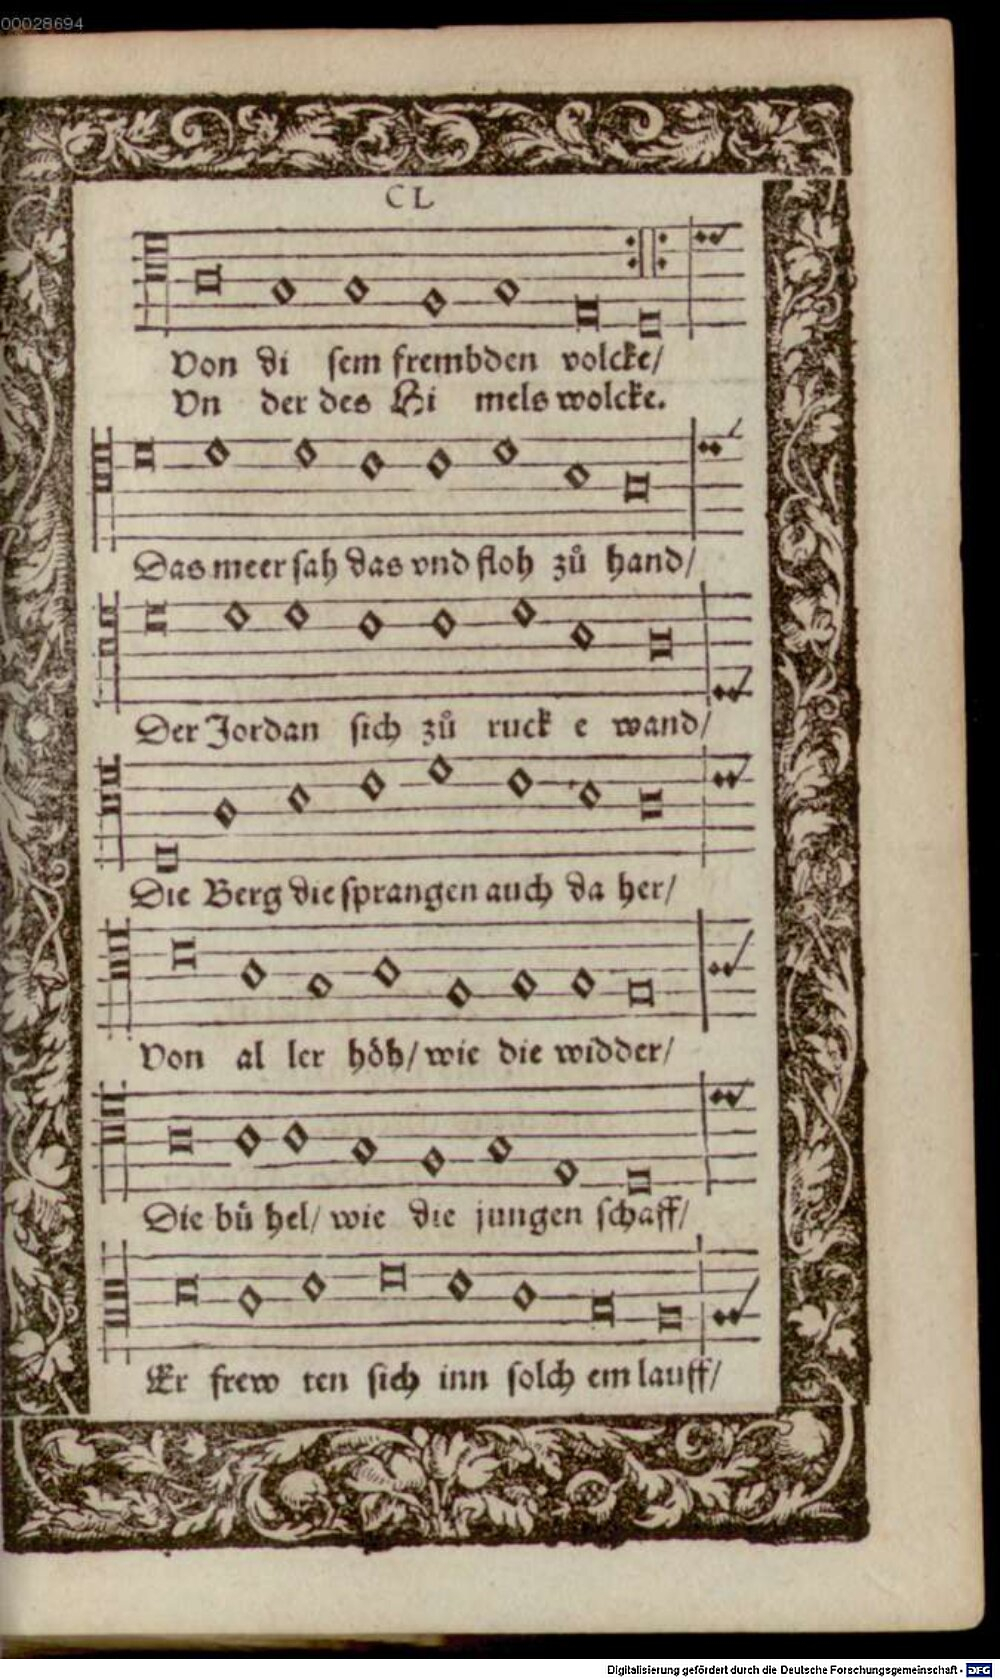 00028694
CL
Von di sem frembden volcke/
Vn der des Hi mels wolcke.
Das meer sah das vnd floh zů hand/
Der Jordan sich zů ruck e wand/
Die Berg die sprangen auch da her/
Von al ler höh/ wie die widder/
Die bů hel/ wie die jungen schaff/
Er frew ten sich inn solch em lauff/
Digitalisierung gefördert durch die Deutsche Forschungsgemeinschaft - DFG